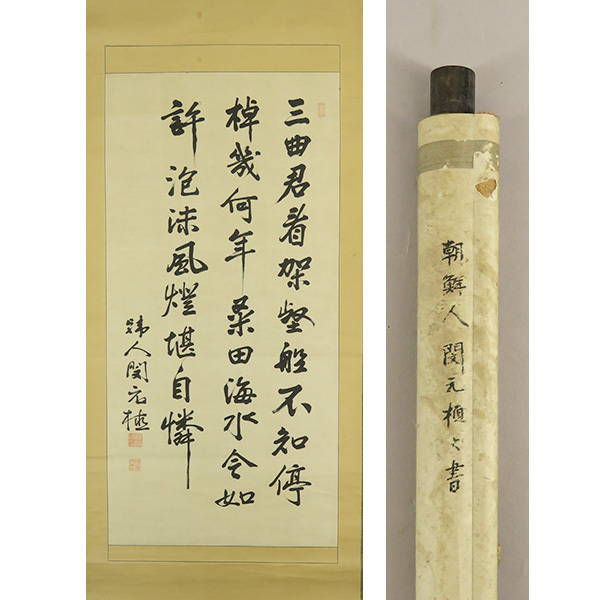 三曲君看架壑船不知停
棹幾何年桑田海水今如
許泡沫風燈堪自憐
韓人閔元植
朝鮮人閔元植之書